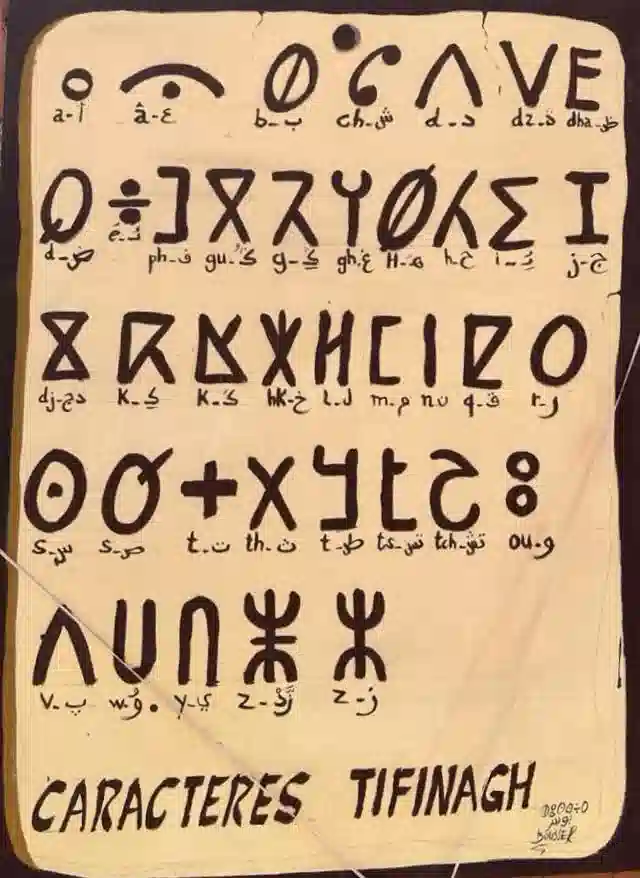 ⴰ ⴱ ⵛ ⴷ ⴸ ⴹ
a-أ â-ع b_ب ch_ش d_د dz_ذ dha_ظ
Q ÷ ⴼ ⴳ ⴴ ⵖ ⵀ ⵃ ⵉ ⵊ
d_ض ph_ف gu_ڭ g_ڲ gh_غ H_ه h_ح i_ j-ج
ⴵ ⴽ ⴿ ⵅ ⵍ ⵎ ⵏ ⵇ ⵔ
dj-دج K_ك K_ك hK-خ L_ل m_م n ن q_ق r_ر
ⵙ ⵚ ⵜ ⵝ ⵟ ⵞ ⵓ
s_س s_ص t_ت th_ث t_ط ts_تس tch_تش ou_و
ⵠ ⵡ ⵢ ⵥ ⵣ
V_پ w_ۇ y_ي z_ z_ز
CARACTERES TIFINAGH